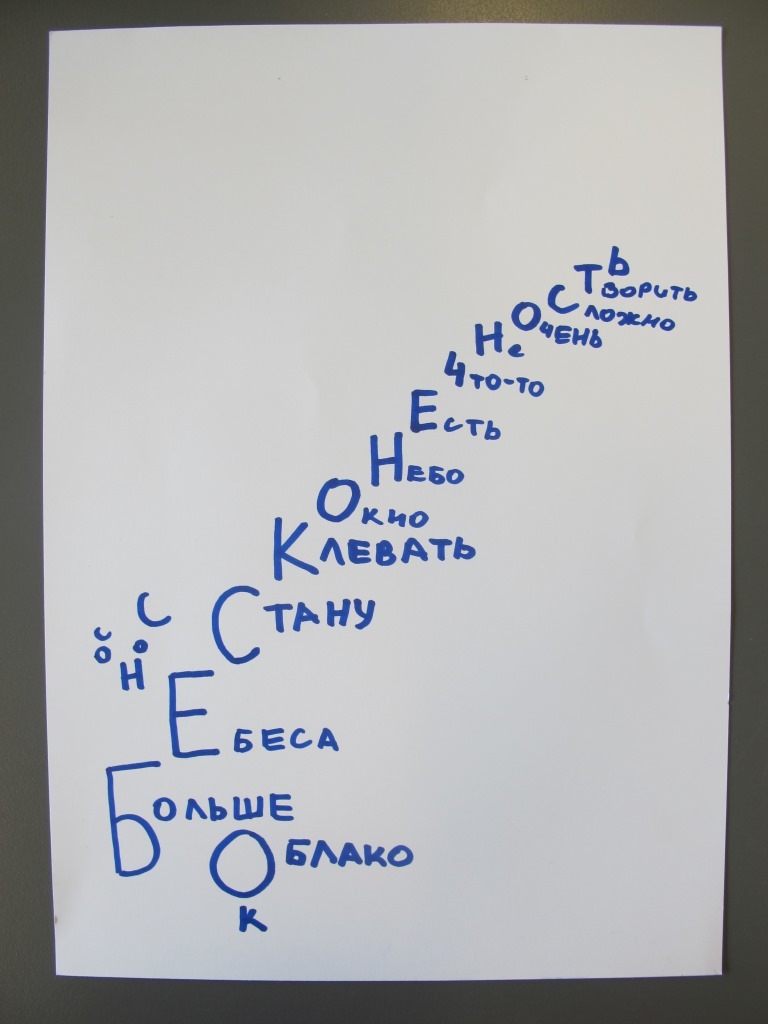 Ь
ТВОРИТЬ
СЛОЖНО
ОЧЕНЬ
Не
ЧТО-ТО
ЕСТЬ
НЕБО
ОКНО
КЛЕВАТЬ
С СТАНУ
с
о о
Н
ЕБЕСА
БОЛЬШЕ
ОБЛАКО
К